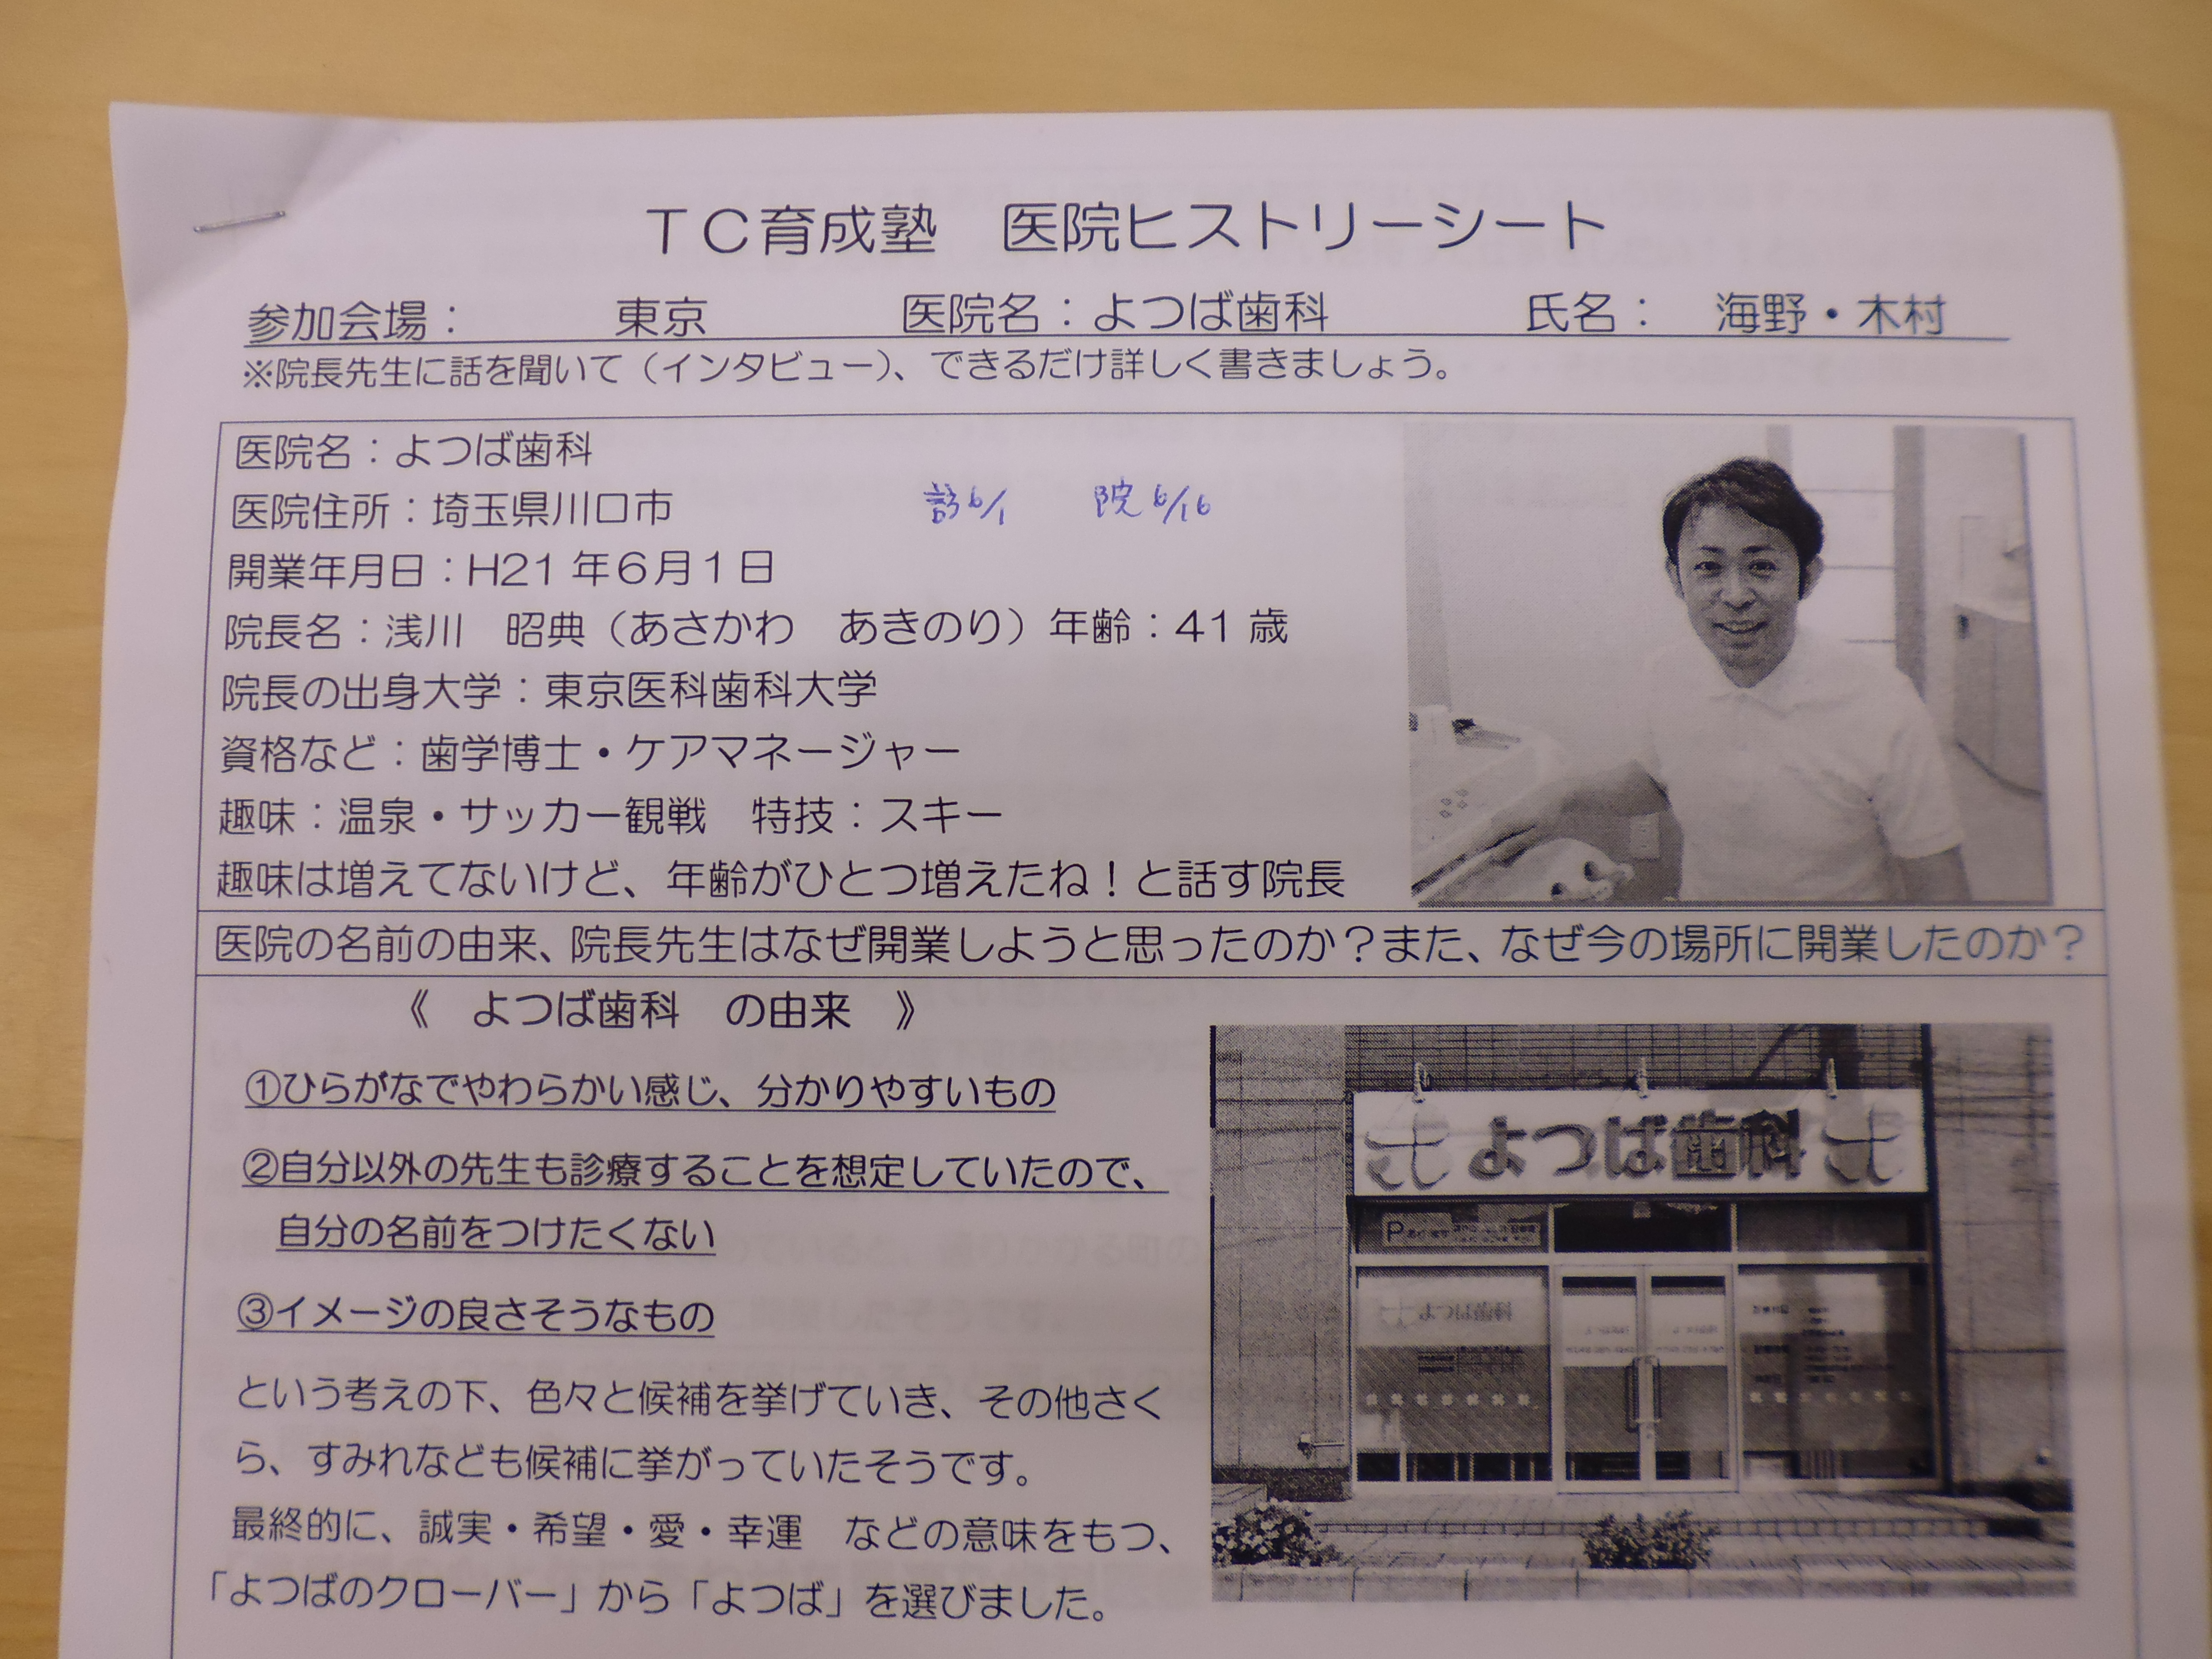 ＴＣ育成塾　医院ヒストリーシート
参加会場：　東京　医院名：よつば歯科　氏名：　海野・木村
※院長先生に話を聞いて（インタビュー）、できるだけ詳しく書きましょう。
医院名：よつば歯科
医院住所：埼玉県川口市
訪6/1　院6/16
開業年月日：H21年6月1日
院長名：浅川　昭典（あさかわ　あきのり）年齢：41歳
院長の出身大学：東京医科歯科大学
資格など：歯学博士・ケアマネージャー
趣味：温泉・サッカー観戦　特技：スキー
趣味は増えてないけど、年齢がひとつ増えたね！と話す院長
医院の名前の由来、院長先生はなぜ開業しようと思ったのか？また、なぜ今の場所に開業したのか？
《　よつば歯科　の由来　》
①ひらがなでやわらかい感じ、分かりやすいもの
②自分以外の先生も診療することを想定していたので、
自分の名前をつけたくない
③イメージの良さそうなもの
という考えの下、色々と候補を挙げていき、その他さく
ら、すみれなども候補に挙がっていたそうです。
最終的に、誠実・希望・愛・幸運　などの意味をもつ、
「よつばのクローバー」から「よつば」を選びました。
よつば歯科
P
よつば歯科